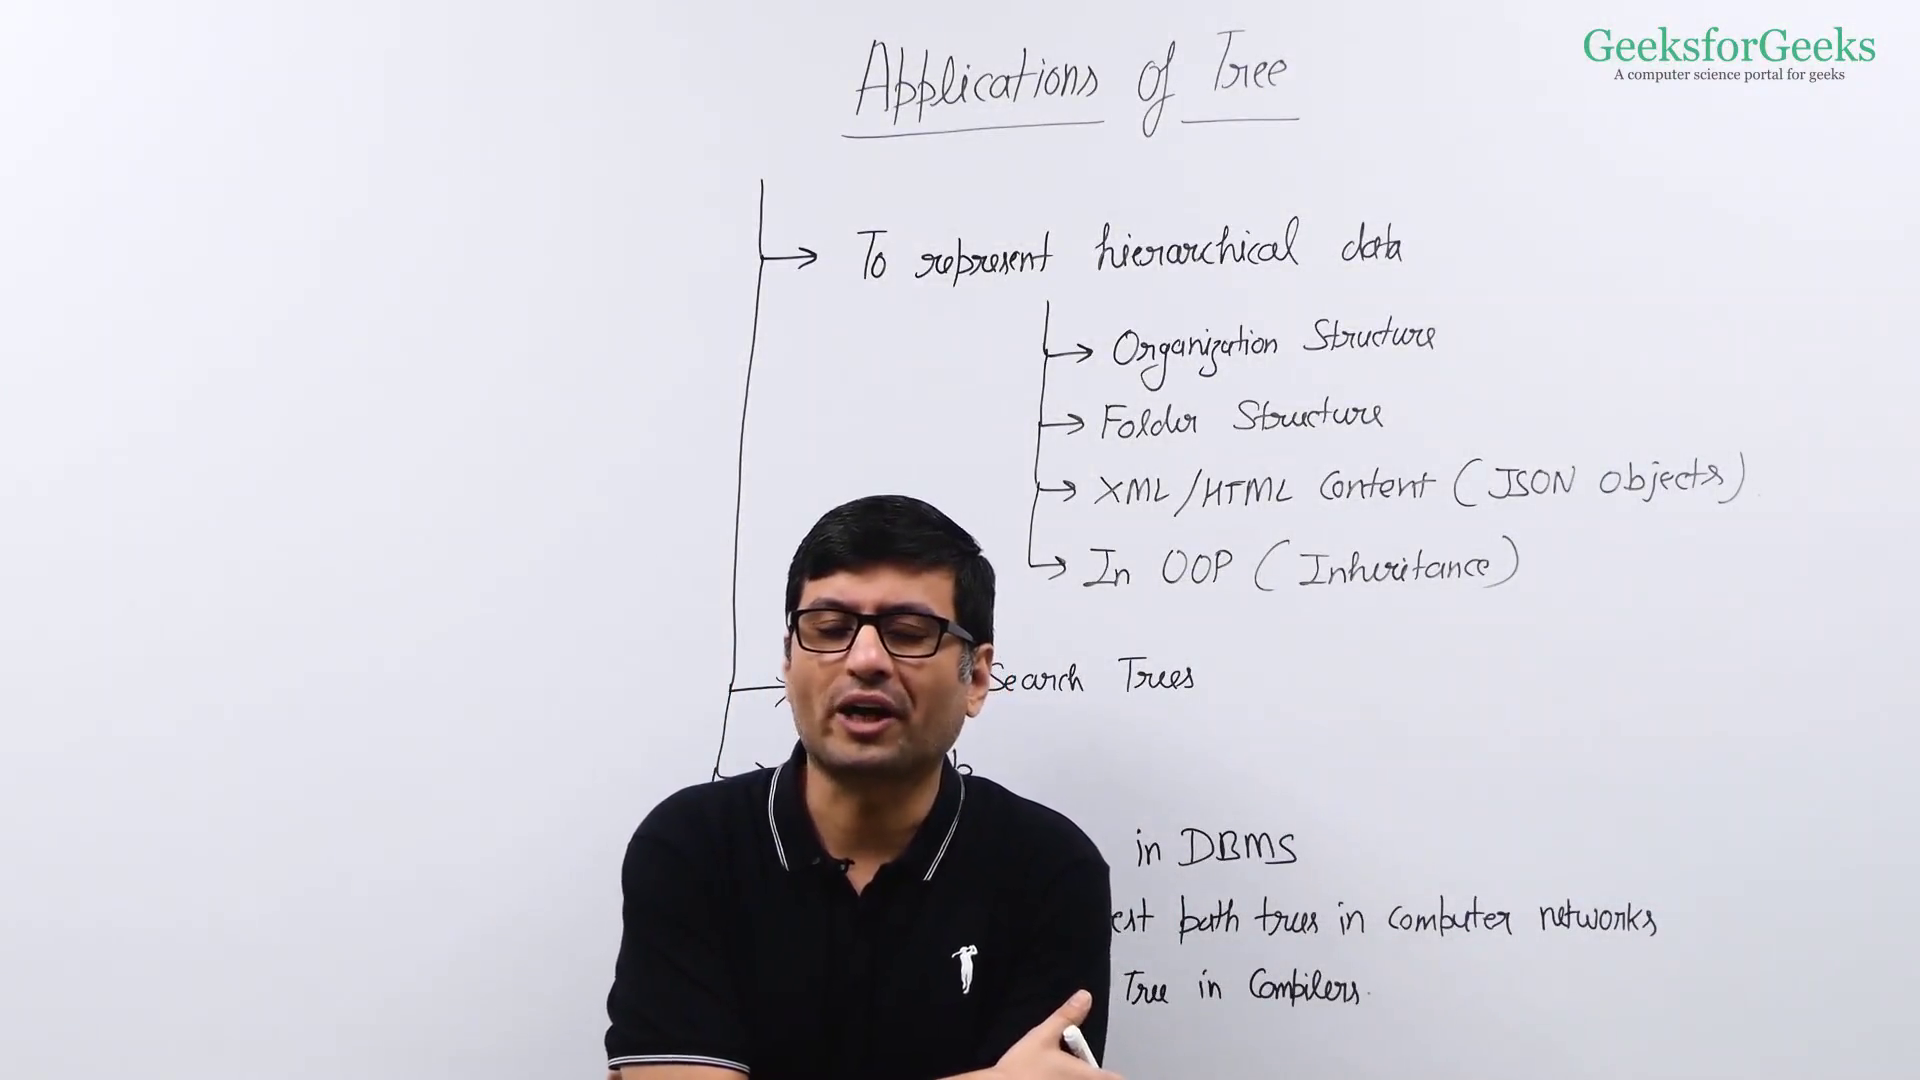 GeeksforGeeks
A computer science portal for geeks
Applications of Tree
To represent hierarchical data
Organization Structure
Folder Structure
XML/HTML Content (JSON Objects)
In OOP (Inheritance)
Search Trees
in DBMS
path trees in computer networks
Tree in Compilers.